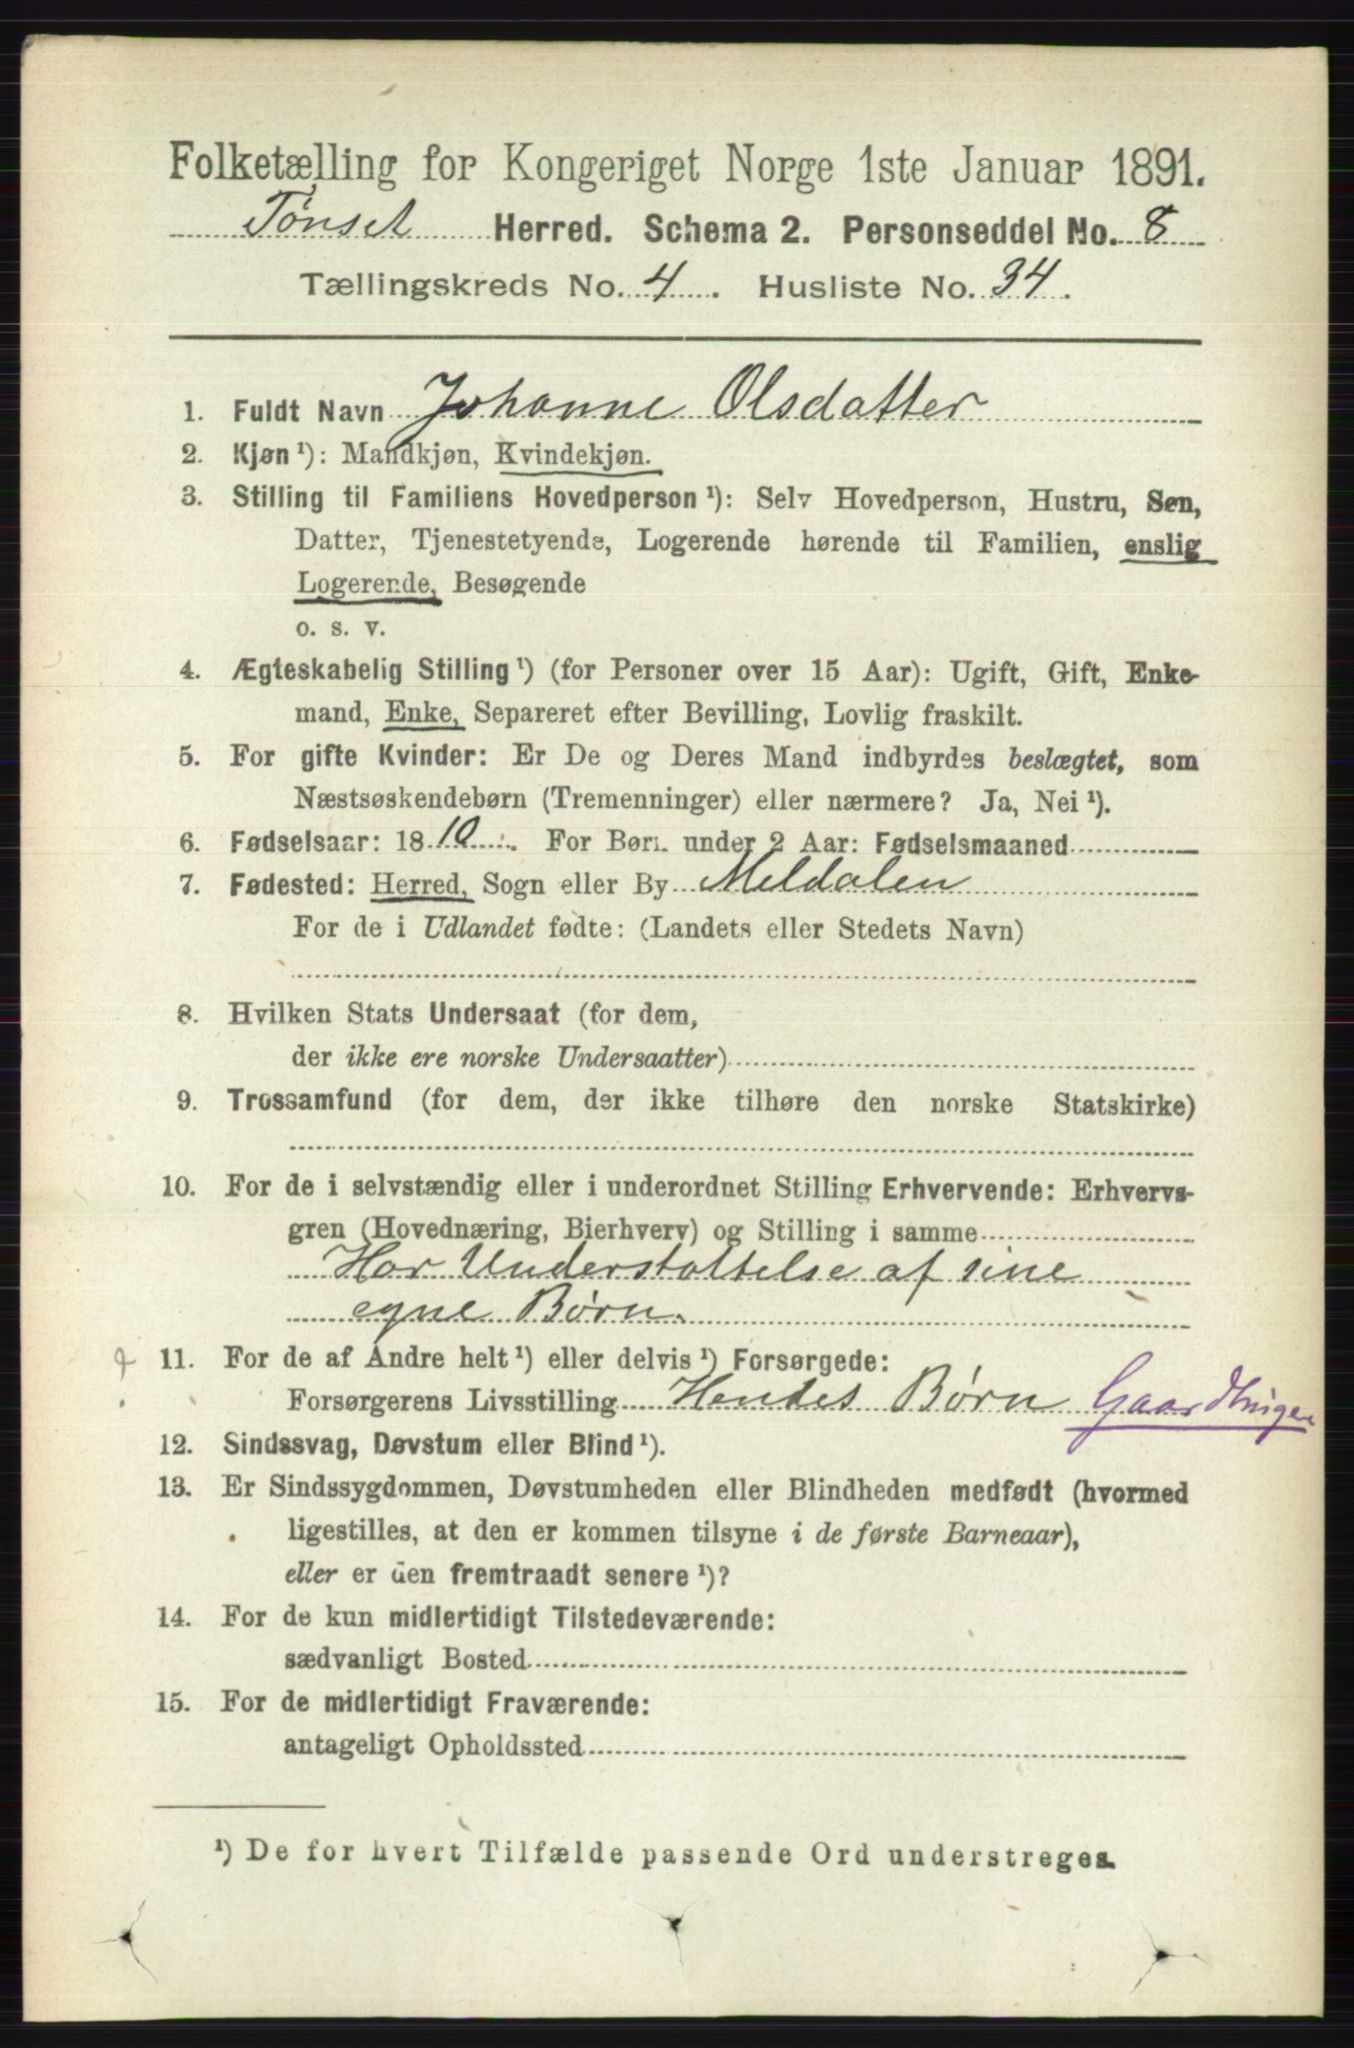 Folketælling for Kongeriget Norge 1ste Januar 1891.
Tønset Herred. Schema 2. Personseddel No. 8
Tællingskreds No. 4. Husliste No. 34.
1. Fuldt Navn Johanne Olsdatter
2. Kjøn ¹): Mandkjøn, Kvindekjøn.
3. Stilling til Familiens Hovedperson ¹): Selv Hovedperson, Hustru, Søn,
Datter, Tjenestetyende, Logerende hørende til Familien, enslig
Logerende, Besøgende
o. s. v.
4. Ægteskabelig Stilling ¹) (for Personer over 15 Aar): Ugift, Gift, Enke-
mand, Enke, Separeret efter Bevilling, Lovlig fraskilt.
5. For gifte Kvinder: Er De og Deres Mand indbyrdes beslægtet, som
Næstsøskendebørn (Tremenninger) eller nærmere? Ja, Nei ¹).
6. Fødselsaar: 1810. For Børn under 2 Aar: Fødselsmaaned
7. Fødested: Herred, Sogn eller By Meldalen
For de i Udlandet fødte: (Landets eller Stedets Navn)
8. Hvilken Stats Undersaat (for dem,
der ikke ere norske Undersaatter)
9. Trossamfund (for dem, der ikke tilhøre den norske Statskirke)
10. For de i selvstændig eller i underordnet Stilling Erhvervende: Erhvervs-
gren (Hovednæring, Bierhverv) og Stilling i samme
Har Understøttelse af sine
egne Børn.
11. For de af Andre helt ¹) eller delvis ¹) Forsørgede:
Forsørgerens Livsstilling Hendes Børn Gaardbruger
12. Sindssvag, Døvstum eller Blind ¹).
13. Er Sindssygdommen, Døvstumheden eller Blindheden medfødt (hvormed
ligestilles, at den er kommen tilsyne i de første Barneaar),
eller er den fremtraadt senere ¹)?
14. For de kun midlertidigt Tilstedeværende:
sædvanligt Bosted
15. For de midlertidigt Fraværende:
antageligt Opholdssted
¹) De for hvert Tilfælde passende Ord understreges.